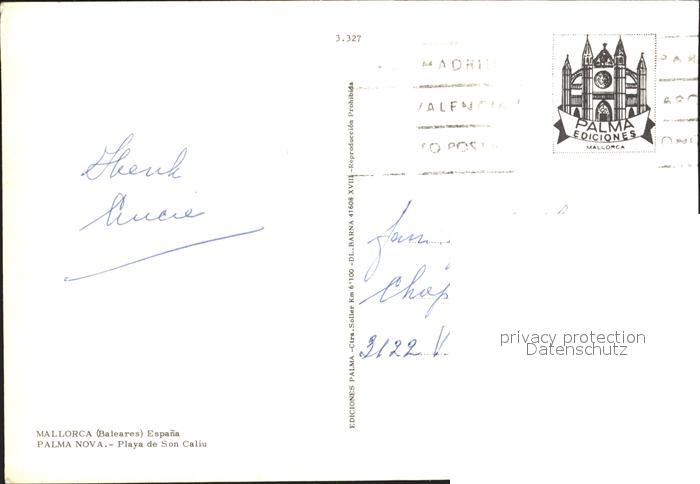 3.327
MADRI
VALENCIA
O POST
PALMA
EDICIONES
MALLORCA
Henk
Lucie
EDICIONES PALMA -Ctra. Soller Km 6'100 -DL. BARNA 41608 XVIII -Reproducción Prohibida
Fam
Chop
3122 V
privacy protection
Datenschutz
MALLORCA (Baleares) España
PALMA NOVA.- Playa de Son Caliu